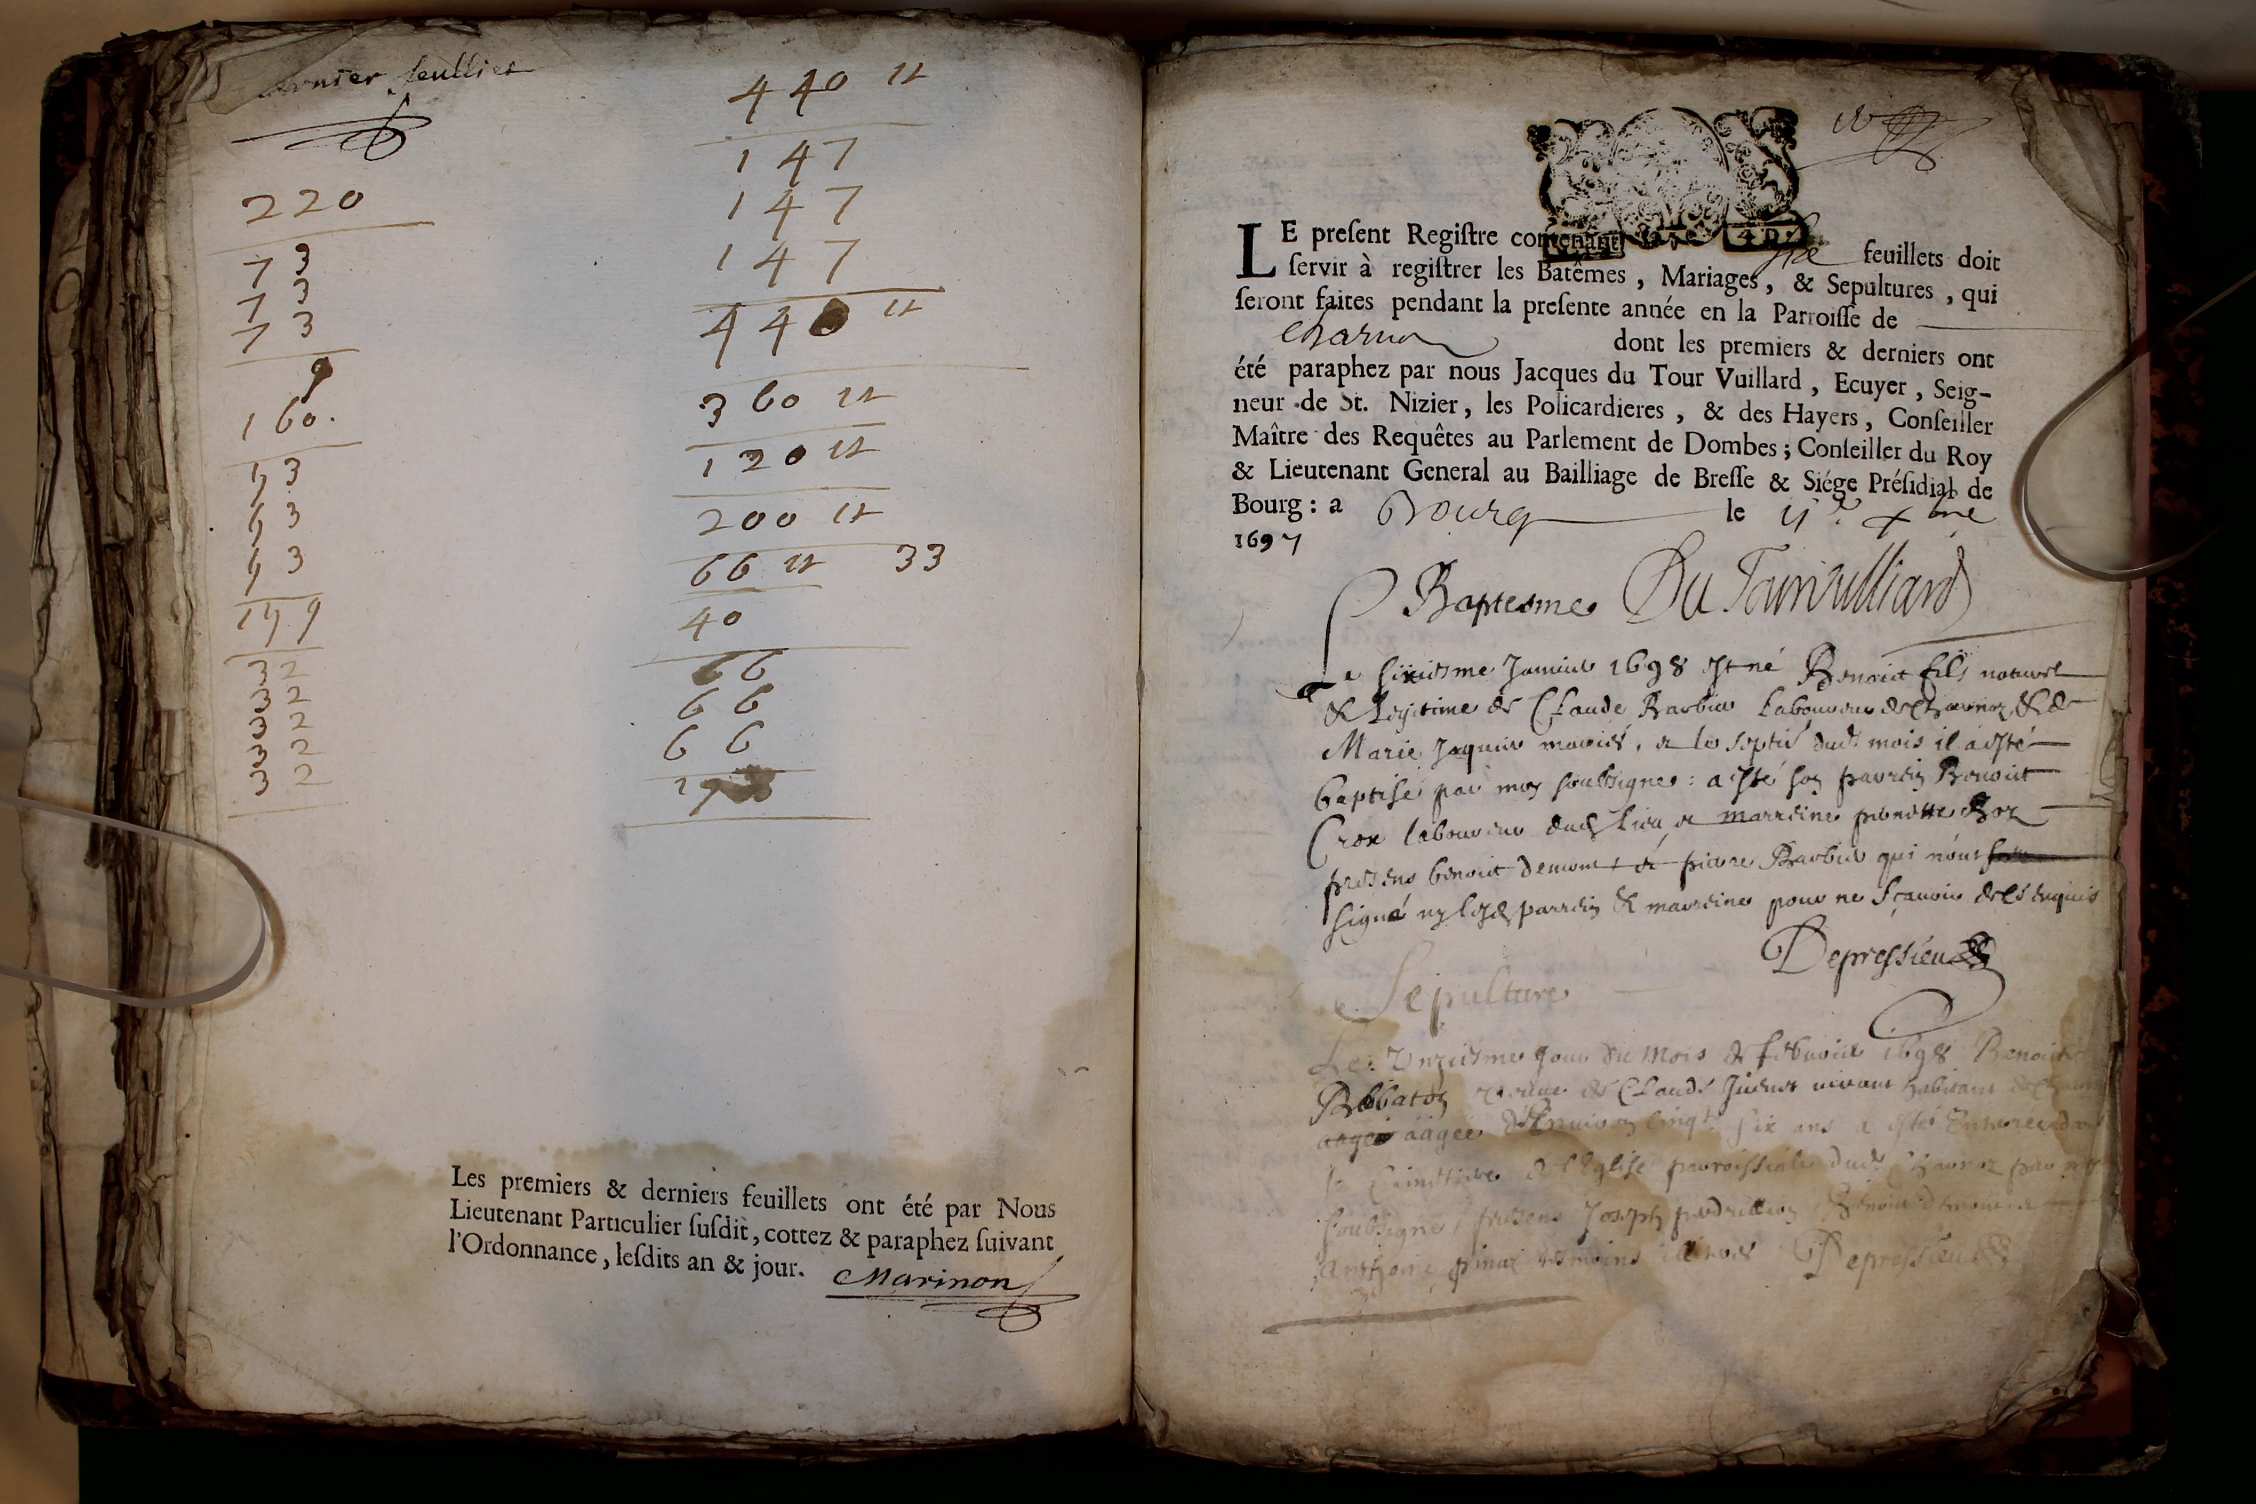 dernier feullier
220
73
73
73
9
160.
199
32
32
32
32
32
440 tt
147
147
147
440 tt
360 tt
120 tt
200 tt
66 tt 33
40
66
66
66
Les premiers & derniers feuillets ont été par Nous
Lieutenant Particulier ſuſdit, cottez & paraphez ſuivant
l'Ordonnance, leſdits an & jour. Marinon
LE preſent Regiſtre contenant feuillets doit
ſervir à regiſtrer les Batêmes, Mariages, & Sepultures, qui
ſeront faites pendant la preſente année en la Parroiſſe de
Charno dont les premiers & derniers ont
été paraphez par nous Jacques du Tour Vuillard, Ecuyer, Seig-
neur de St. Nizier, les Policardieres, & des Hayers, Conſeiller
Maître des Requêtes au Parlement de Dombes; Conſeiller du Roy
& Lieutenant General au Bailliage de Breſſe & Siége Préſidial de
Bourg: a Bourg le
1697
Baptesme Du Tourvulliard
Le sixiesme Janvier 1698 est né Benoict fils naturel
& Legitime de Claude Barbier Laboureur de Charnoz & de
Marie Jaquier mariés, & le septie dud. mois il a esté
baptisé par moy soubsigné: a esté son parrein Benoict
Croix laboureur dud. lieu & marreine
presens benoict demont & pierre Barbier qui n'ont
signé ny lesd. parrein & marreine pour ne sçavoir de ce enquis
Depressieu
Sepulture
Le Unziesme jour du Mois de febvrier 1698 Benoite
Rebbaton veufve de Claude vivant habitant de
aagee d'Environ cinqte six ans a esté Enterree da
le Cimetiere de l'Eglise parroissiale dud. Charnoz par moy
soubsigné, presens Joseph Benoict demont &
Anthoine pinaz tesmoins Depressieu